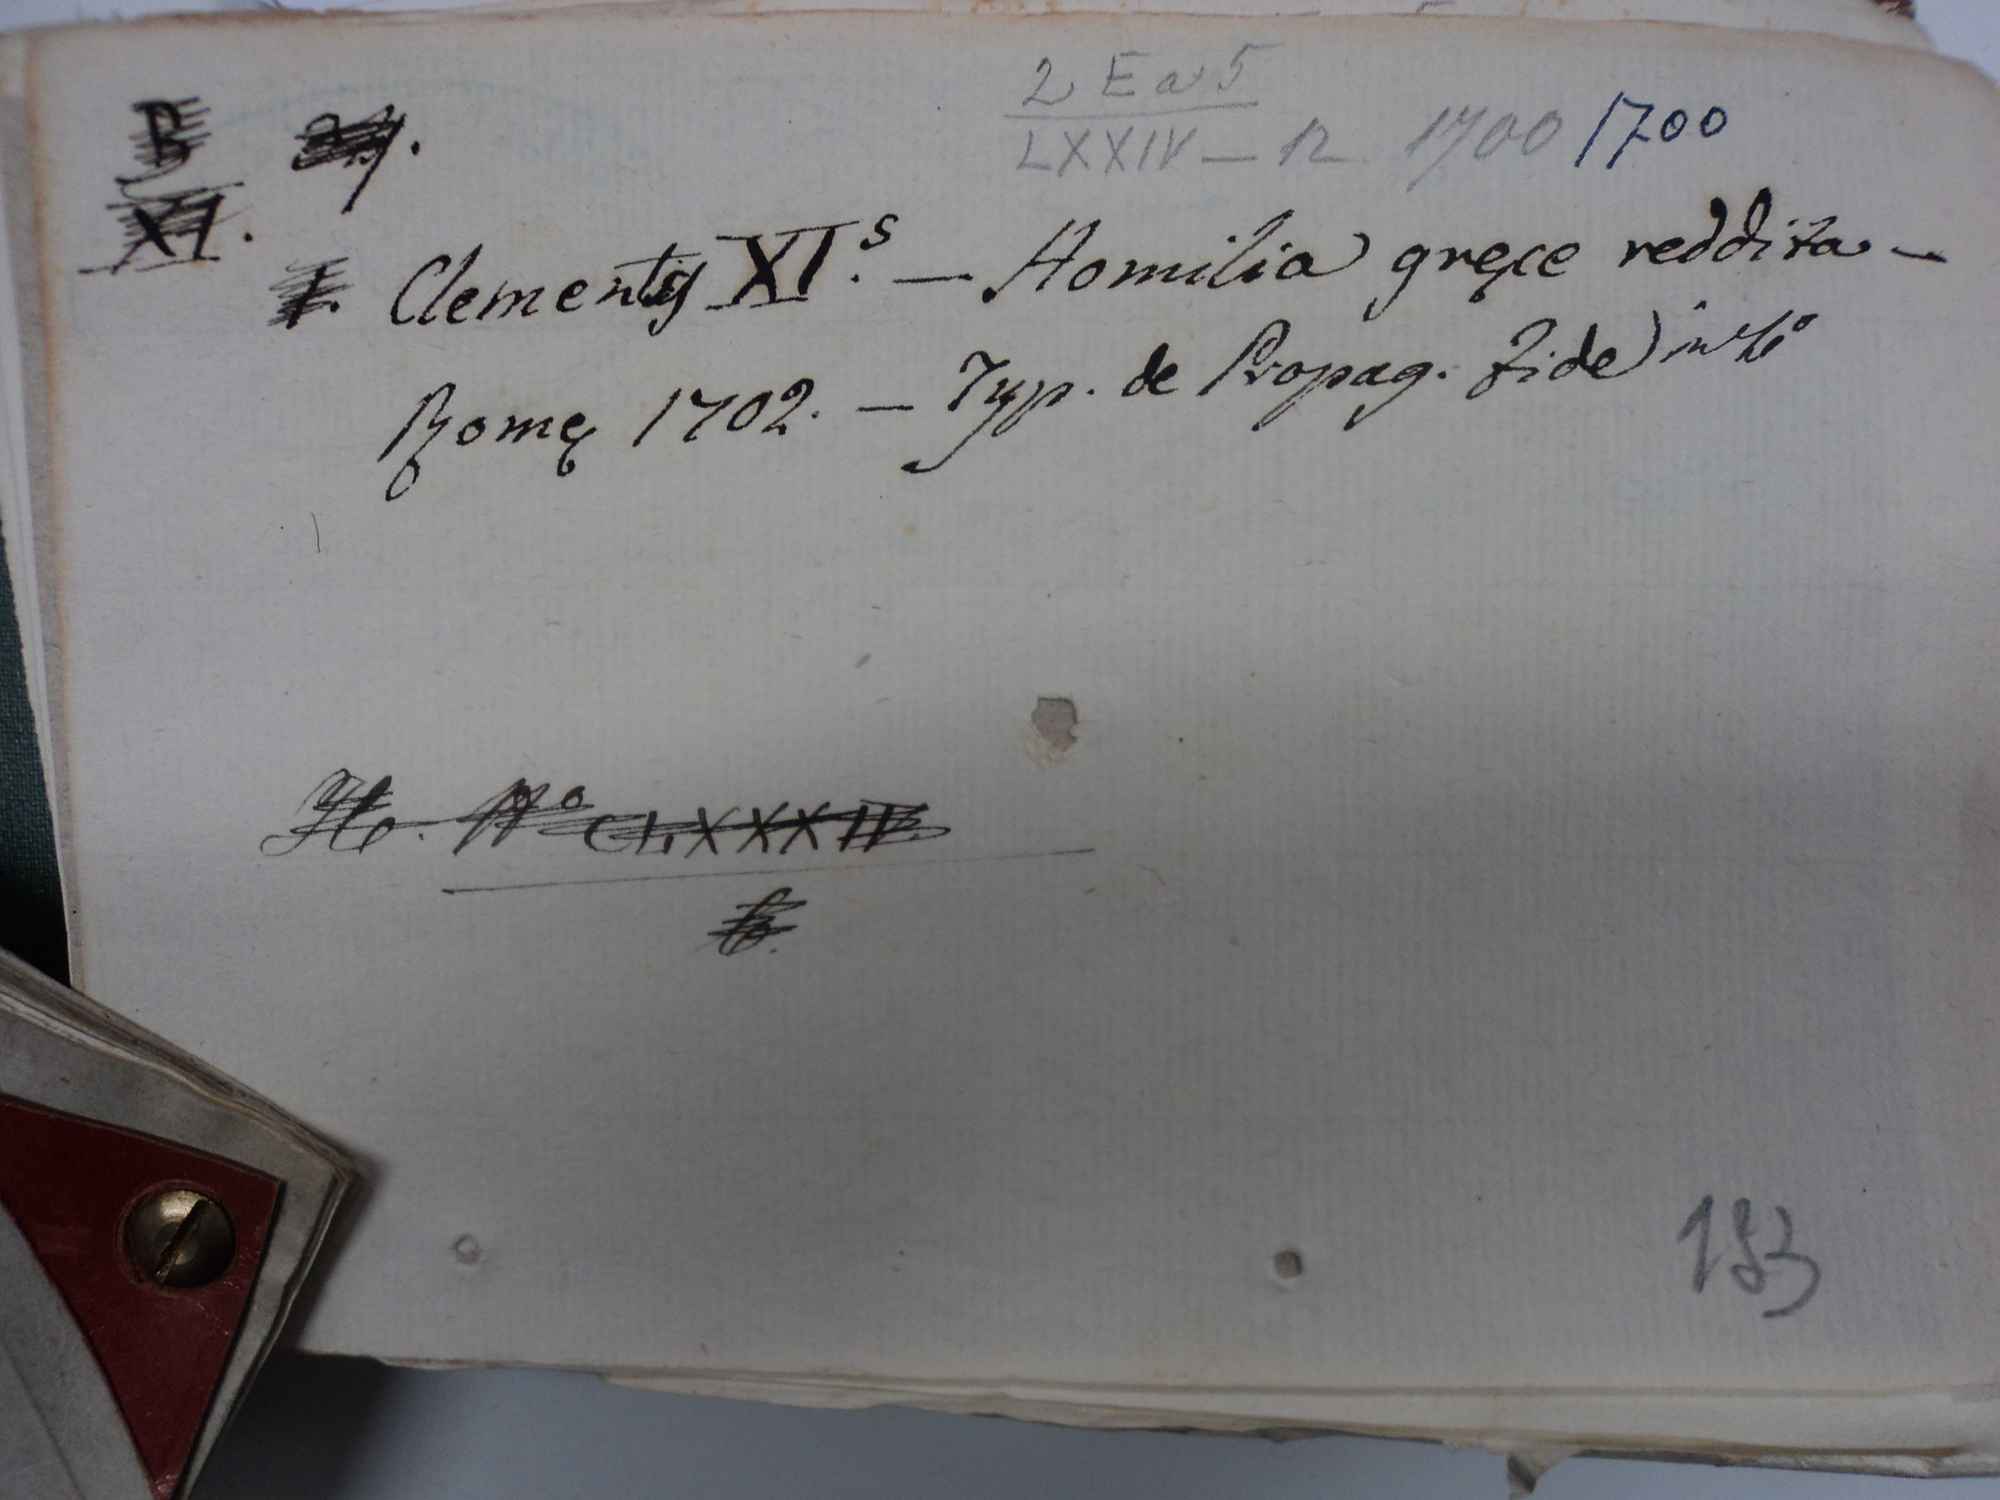 2 Ea 5
B 27.
LXXIV — 12 1700 1700
XI.
1. Clementis XI.s — Homilia gręce reddita —
Romę 1702. — Typ. de Propag. Fide in 4o
No CLXXXIV.
6.
183